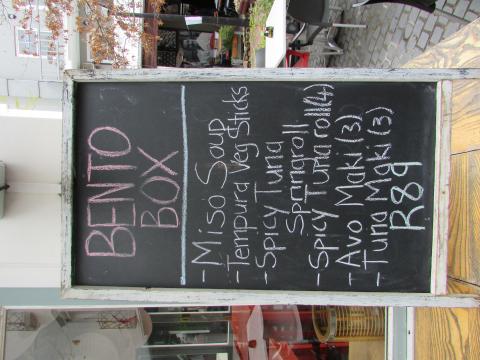 BENTO
BOX
- Miso Soup
- Tempura Veg Sticks
- Spicy Tuna
Springroll
- Spicy Tuna roll (4)
- Avo Maki (3)
- Tuna Maki (3)
R89